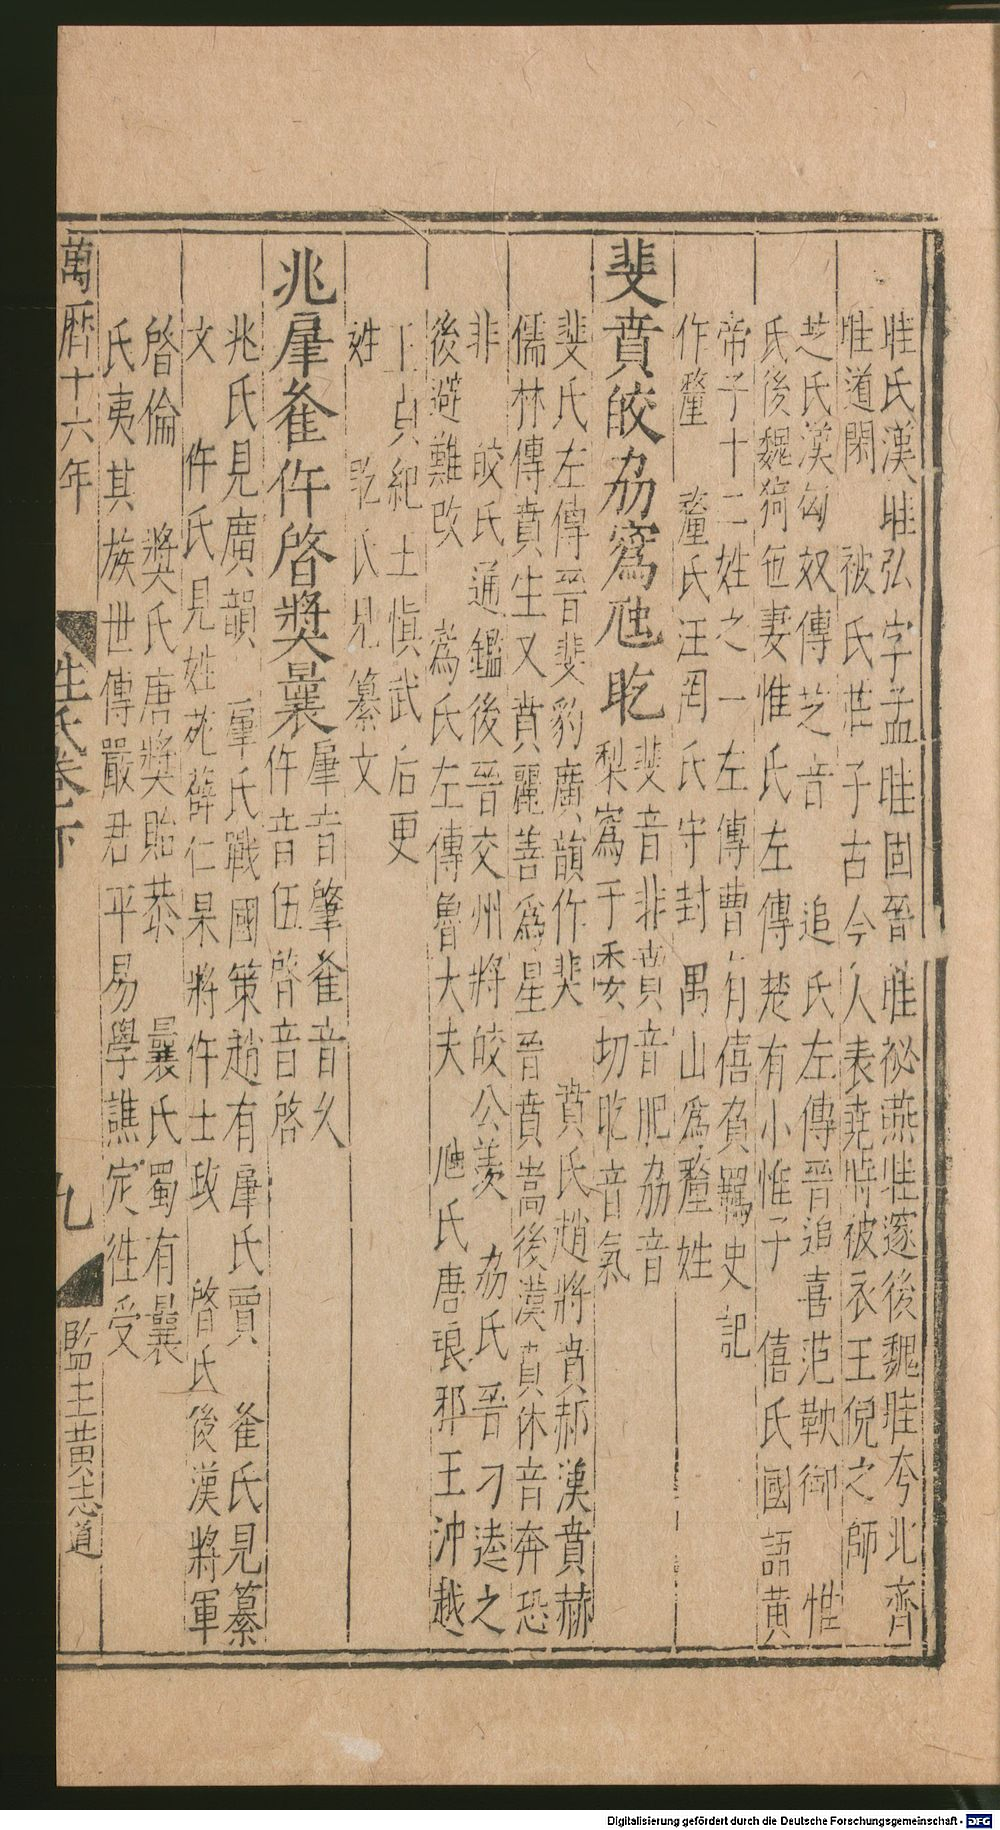 眭氏漢眭弘字孟眭固晉眭祕燕眭邃後魏眭夸北齊
眭道閑　被氏莊子古今人表堯時被衣王倪之師
芝氏漢匈奴傳芝音　追氏左傳晉追喜范鞅御　惟
氏後魏猗㐌妻惟氏左傳楚有小惟子　僖氏國語黃
帝子十二姓之一左傳曹有僖負羈史記
作釐　釐氏汪罔氏守封禺山爲釐姓
斐賁皎劦寪虺盵
斐音非賁音肥劦音
梨寪于委切盵音氣
斐氏左傳晉斐豹廣韻作裴　賁氏趙將賁郝漢賁赫
儒林傳賁生又賁麗善爲星晉賁嵩後漢賁休音奔恐
非　皎氏通鑑後晉交州將皎公羨　劦氏晉刁逵之
後避難改　寪氏左傳魯大夫　虺氏唐琅邪王沖越
王貞紀王愼武后更
姓　盵氏見纂文
兆肁夆仵啓獎曩
肁音肇夆音父
仵音伍啓音啓
兆氏見廣韻　肁氏戰國策趙有肁氏賈　夆氏見纂
文　仵氏見姓苑薛仁杲將仵士政　啓氏後漢將軍
啓倫　獎氏唐獎貽恭　曩氏蜀有曩
氏夷其族世傳嚴君平易學譙定徃受
萬曆十六年
姓氏卷之下
九
監生黃志道
Digitalisierung gefördert durch die Deutsche Forschungsgemeinschaft - DFG